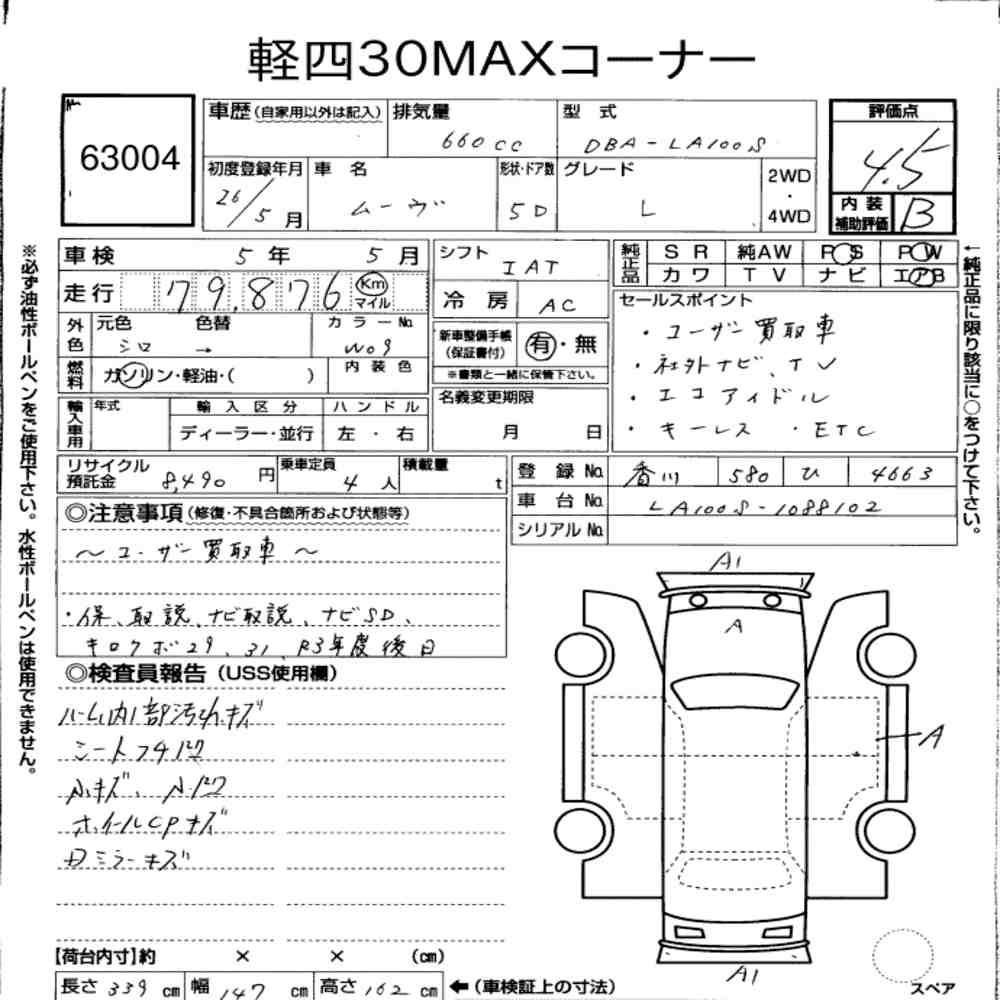 軽四30MAXコーナー
63004
車歴(自家用以外は記入) 排気量 型 式 評価点
660cc DBA-LA100S 4.5
初度登録年月 車 名 形状・ドア数 グレード 2WD・4WD 内装補助評価
26/5月 ムーヴ 5D L B
車検 5年 5月 シフト IAT 純正品 SR 純AW PS PW
カワ TV ナビ エアB
走行 79,876 Km マイル 冷房 AC
セールスポイント
・ユーザー買取車
・社外ナビ、TV
・エコアイドル
・キーレス ・ETC
外色 元色 色替 カラーNo.
シロ → W09
新車整備手帳(保証書付) 有・無
※書類と一緒に保管下さい。
燃料 ガソリン・軽油・( ) 内装色
名義変更期限
月 日
輸入車用 年式 輸入区分 ハンドル
ディーラー・並行 左・右
リサイクル預託金 8,490円 乗車定員 4人 積載量 t
登録No. 香川 580 ひ 4663
車台No. LA100S-1088102
シリアルNo.
◎注意事項(修復・不具合箇所および状態等)
〜ユーザー買取車〜
・保、取説、ナビ取説、ナビSD、
キロクボ29、31、R3年度後日
◎検査員報告(USS使用欄)
ルーム内1部汚れキズ
シートフチ凹
小キズ、小凹
ホイールCPキズ
Dミラーキズ
A1
A
A
A1
【荷台内寸】約 × × (cm)
長さ339cm 幅147cm 高さ162cm ←(車検証上の寸法)
スペア
※必ず油性ボールペンをご使用下さい。水性ボールペンは使用できません。
←純正品に限り該当に○をつけて下さい。